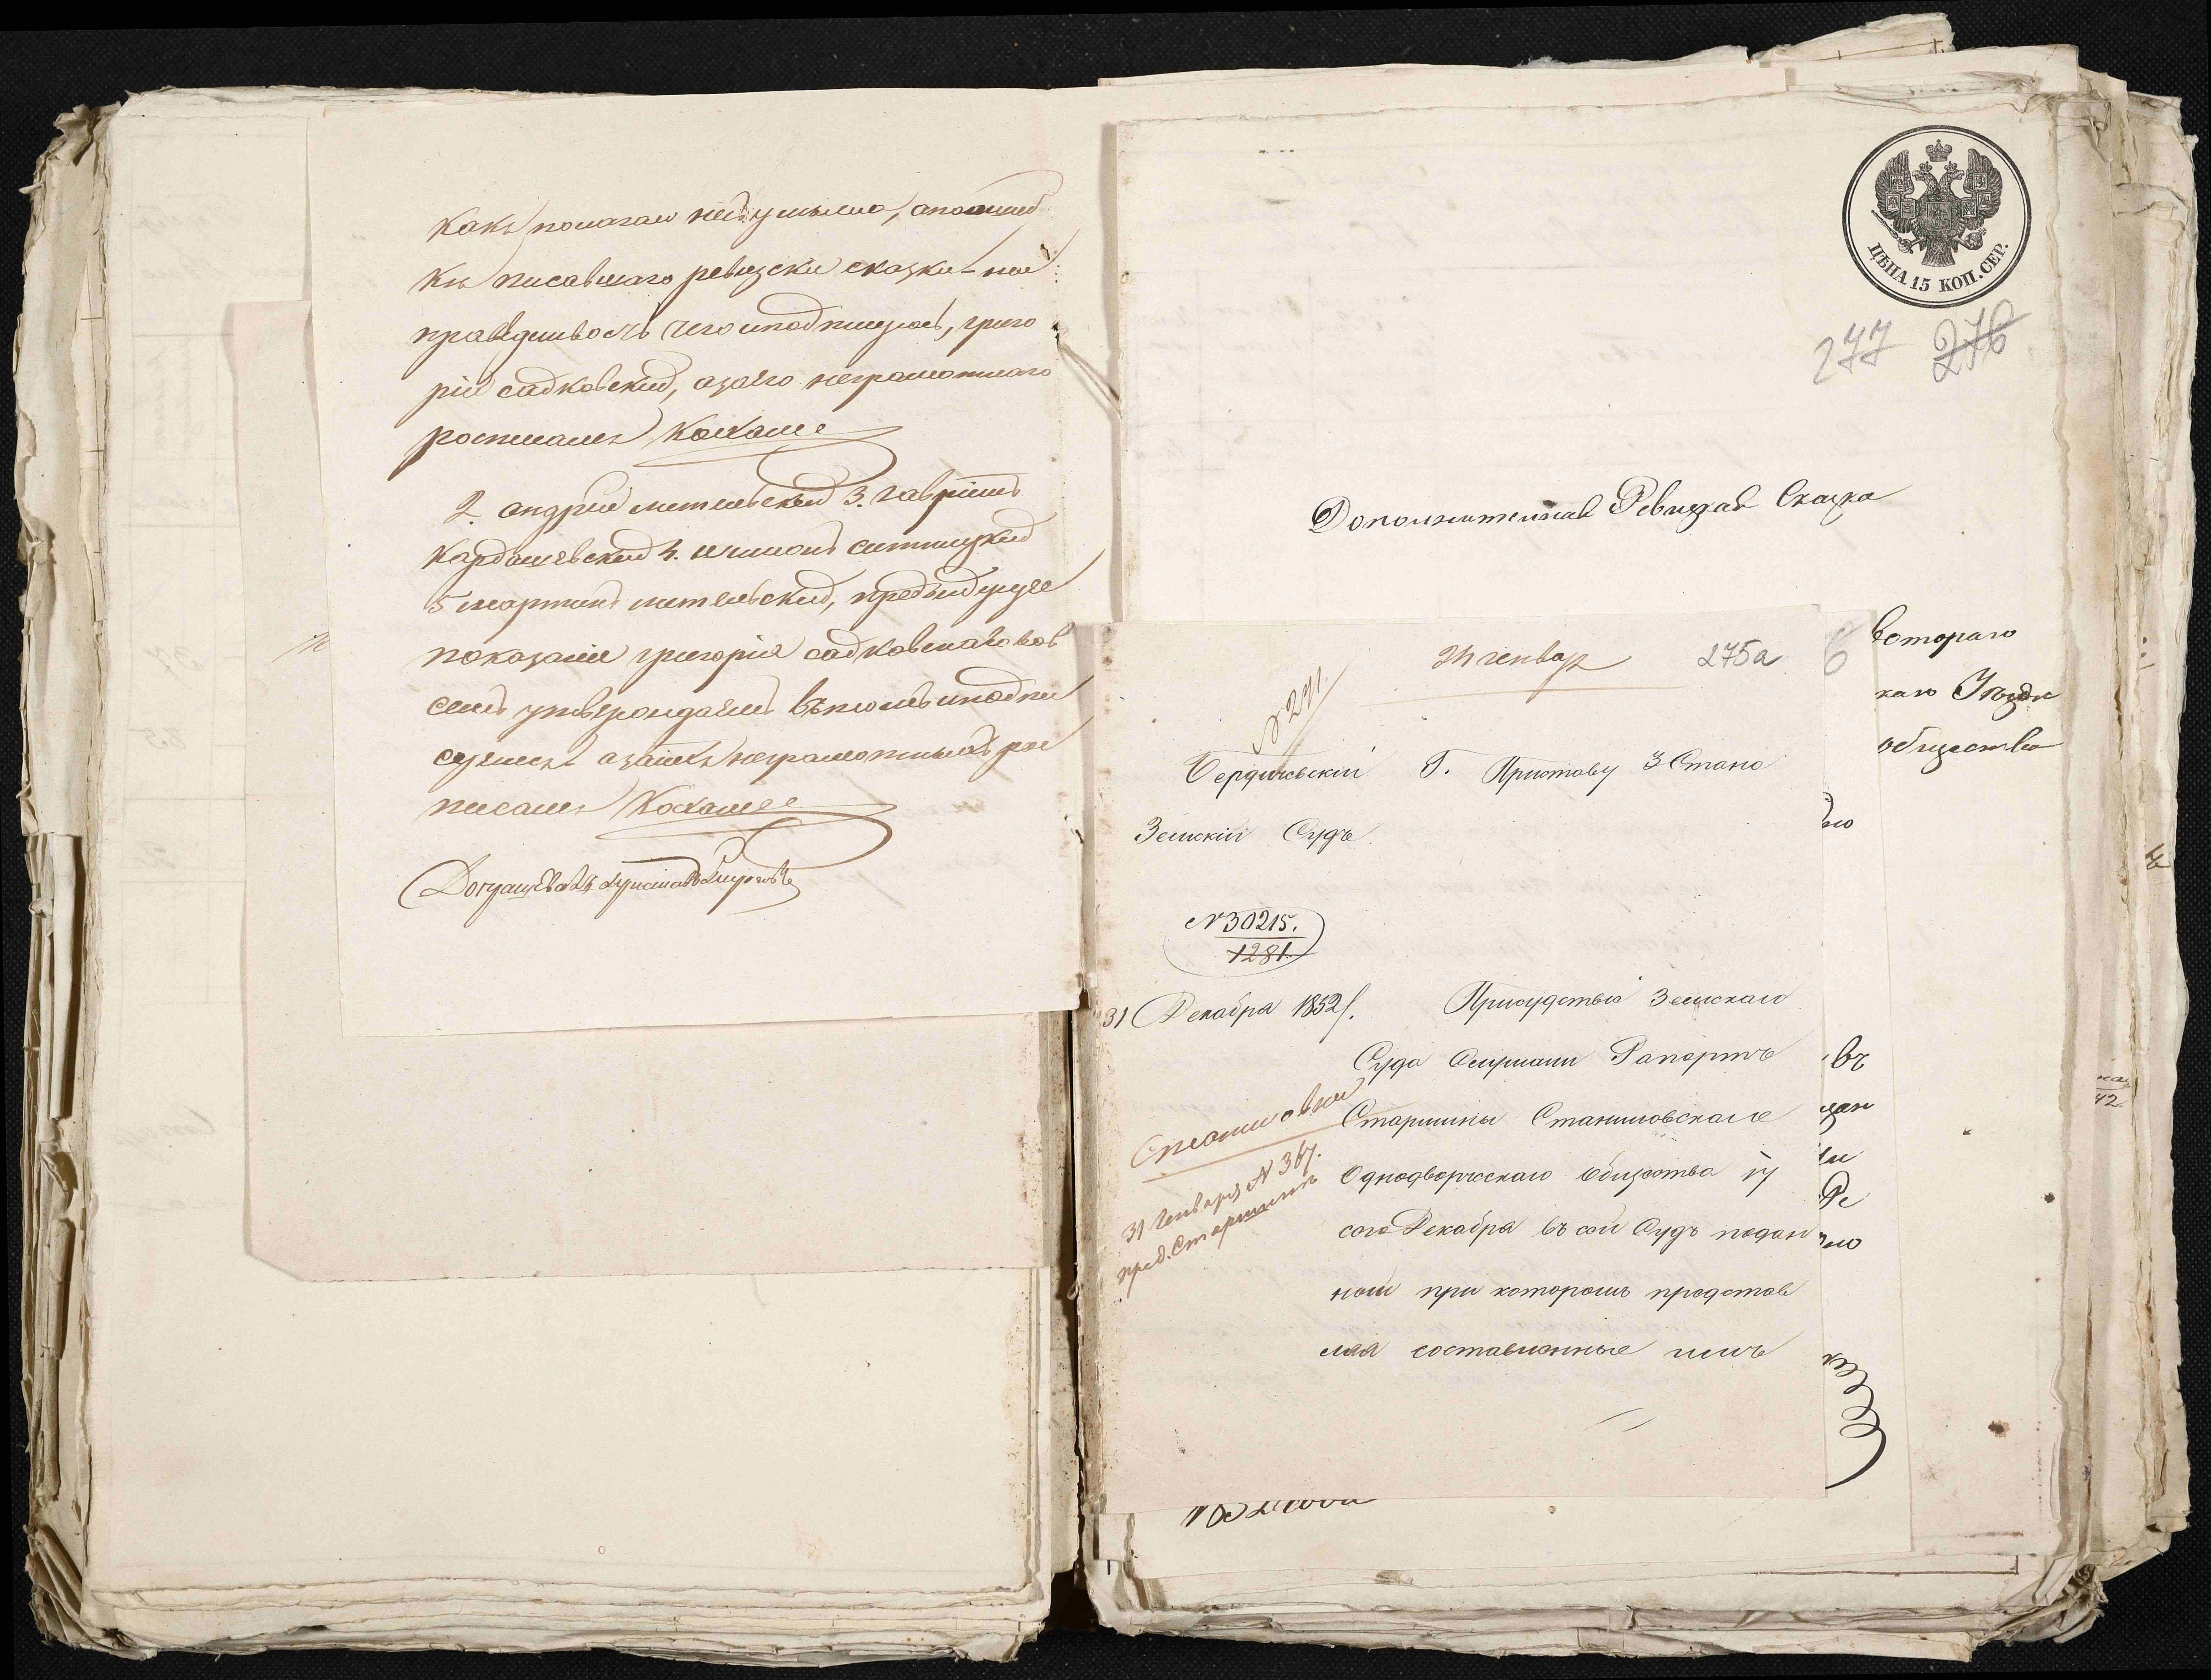 какъ полагаю неdумышло, апоошиб
ки писавшаго ревизски сказки - на
праведливость чего иподпишуюсь, григо
рій садковскій, азаего неграмотнаго
росписалъ
2. андрей метельскій 3. гаврiилъ
Кардашевскій 4. 
5 мартинъ метельскій, предъидущее
показаніе григорія садковскаго вов
семъ утверждаемъ въ томъ иподпи
суемъ азанихъ неграмотныхъ рос
писалъ
ЦѢНА 15 КОП. СЕР.
277 276
Дополнительная Ревизкая Сказка
втораго
каго Уѣзда
общества
24 генвар 275а
№ 291.
Бердичевскій Г. Приставу 3 Стана
Земскій Судъ.
№ 30215.
1281.
31 Декабря 1852 г. Присудствіе Земскаго
Суда Слушали Рапортъ
Старшины Станишовскаго
Однодворческаго общества 17
сего Декабря въ сей Судъ подан
ной при которомъ представ
ляя составленные имъ
Станишовка
31 Генваря № 367.
пред. Старшинѣ
въ